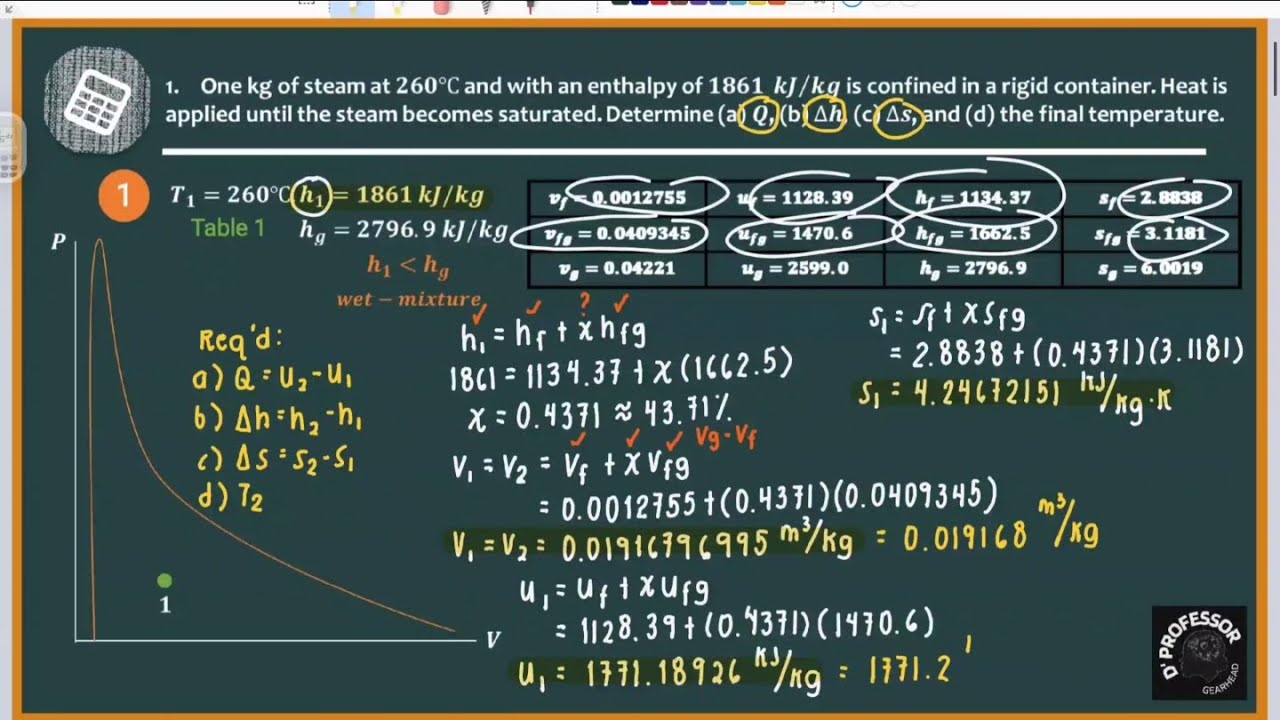 1. One kg of steam at 260°C and with an enthalpy of 1861 kJ/kg is confined in a rigid container. Heat is
applied until the steam becomes saturated. Determine (a) Q, (b) Δh, (c) Δs, and (d) the final temperature.
1
T₁ = 260°C h₁ = 1861 kJ/kg
Table 1 h_g = 2796.9 kJ/kg
h₁ < h_g
wet – mixture
v_f = 0.0012755 u_f = 1128.39 h_f = 1134.37 s_f = 2.8838
v_fg = 0.0409345 u_fg = 1470.6 h_fg = 1662.5 s_fg = 3.1181
v_g = 0.04221 u_g = 2599.0 h_g = 2796.9 s_g = 6.0019
P
1
V
Req'd:
a) Q = U₂ - U₁
b) Δh = h₂ - h₁
c) Δs = s₂ - s₁
d) T₂
✓ ✓ ? ✓
h₁ = h_f + x h_fg
1861 = 1134.37 + x (1662.5)
x = 0.4371 ≈ 43.71%
✓ ✓ ✓ V_g - V_f
V₁ = V₂ = V_f + x V_fg
= 0.0012755 + (0.4371)(0.0409345)
V₁ = V₂ = 0.01916796995 m³/kg = 0.019168 m³/kg
U₁ = U_f + x U_fg
= 1128.39 + (0.4371)(1470.6)
U₁ = 1771.18926 kJ/kg = 1771.2
s₁ = s_f + x s_fg
= 2.8838 + (0.4371)(3.1181)
s₁ = 4.24672151 kJ/kg·K
D' PROFESSOR
GEARHEAD